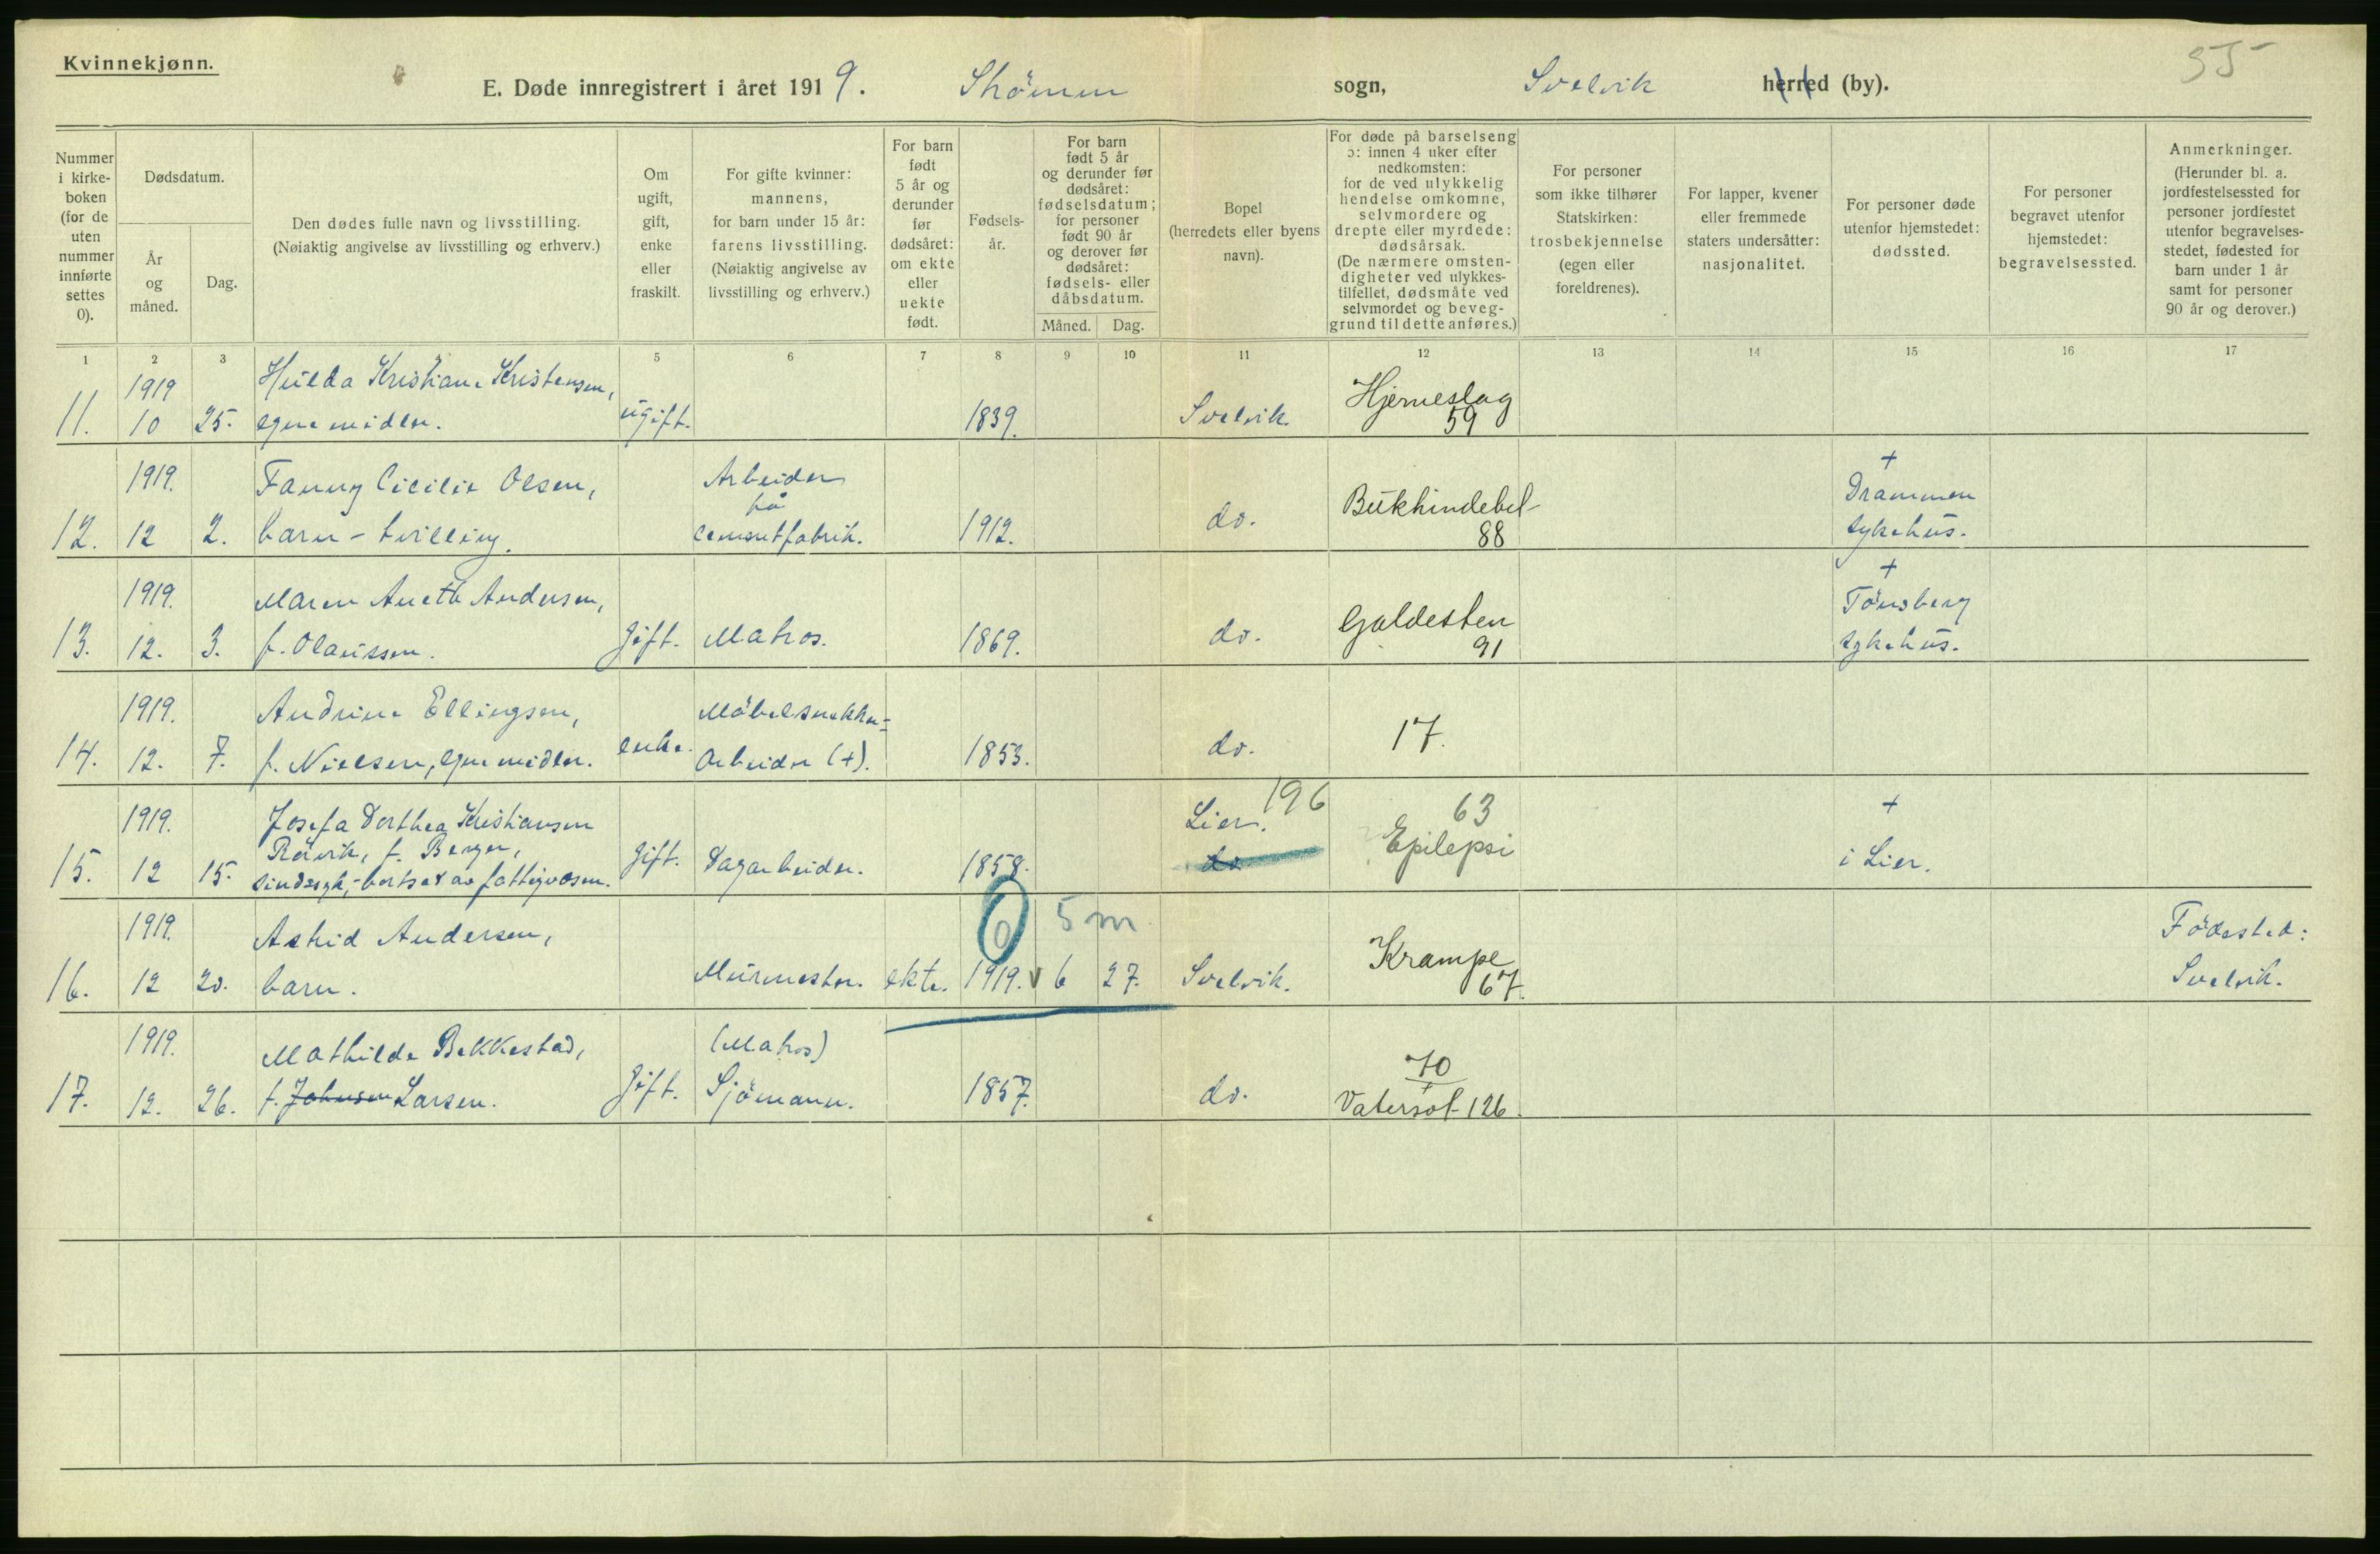 Kvinnekjønn.
E. Døde innregistrert i året 1919. Strømm sogn, Svelvik herred (by).
Nummer i kirke-boken (for de uten nummer innførte settes 0).
Dødsdatum.
År og måned.
Dag.
Den dødes fulle navn og livsstilling.
(Nøiaktig angivelse av livsstilling og erhverv.)
Om ugift, gift, enke eller fraskilt.
For gifte kvinner: mannens, for barn under 15 år: farens livsstilling. (Nøiaktig angivelse av livsstilling og erhverv.)
For barn født 5 år og derunder før dødsåret: om ekte eller uekte født.
Fødsels-år.
For barn født 5 år og derunder før dødsåret: fødselsdatum; for personer født 90 år og derover før dødsåret: fødsels- eller dåbsdatum.
Måned. Dag.
Bopel (herredets eller byens navn).
For døde på barselseng ɔ: innen 4 uker efter nedkomsten: for de ved ulykkelig hendelse omkomne, selvmordere og drepte eller myrdede: dødsårsak. (De nærmere omsten-digheter ved ulykkes-tilfellet, dødsmåte ved selvmordet og beveg-grund til dette anføres.)
For personer som ikke tilhører Statskirken: trosbekjennelse (egen eller foreldrenes).
For lapper, kvener eller fremmede staters undersåtter: nasjonalitet.
For personer døde utenfor hjemstedet: dødssted.
For personer begravet utenfor hjemstedet: begravelsessted.
Anmerkninger. (Herunder bl. a. jordfestelsessted for personer jordfestet utenfor begravelses-stedet, fødested for barn under 1 år samt for personer 90 år og derover.)
1 2 3 5 6 7 8 9 10 11 12 13 14 15 16 17
1919 Hulda Kristiane Kristensen, Hjerneslag
11. 10 25. egne midler. ugift. 1839. Svelvik. 59
1919. Fanny Cicilie Olsen, Arbeider på Bukhindebet. + Drammen
12. 12 2. barn - tvilling. cementfabrik. 1912. do. 88 sykehus.
1919. Maren Aneth Andersen, Galdesten + Tønsberg
13. 12. 3. f. Olaussen. gift. Matros. 1869. do. 91 sykehus.
1919. Andrine Ellingsen, Møbelsnekker= 17.
14. 12. 7. f. Nielsen, egne midler. enke. Arbeider (+). 1853. do.
1919. Josefa Dorthea Kristiansen Lier. 196 63 +
Rørvik, f. Berger, Epilepsi
15. 12 15. sindssyk, - bortsat av fattigvæsen. gift. Dagarbeider. 1858. do i Lier.
1919. Astrid Andersen, 0 5 m Krampe Fødested:
16. 12 20. barn. Murmester. ekte. 1919. v 6 27. Svelvik. 67. Svelvik.
1919. Mathilde Bekkestad, (Matros) 70
17. 12. 26. f. Johnsen Larsen. gift. Sjømann. 1857. do. + Vatersot 126.